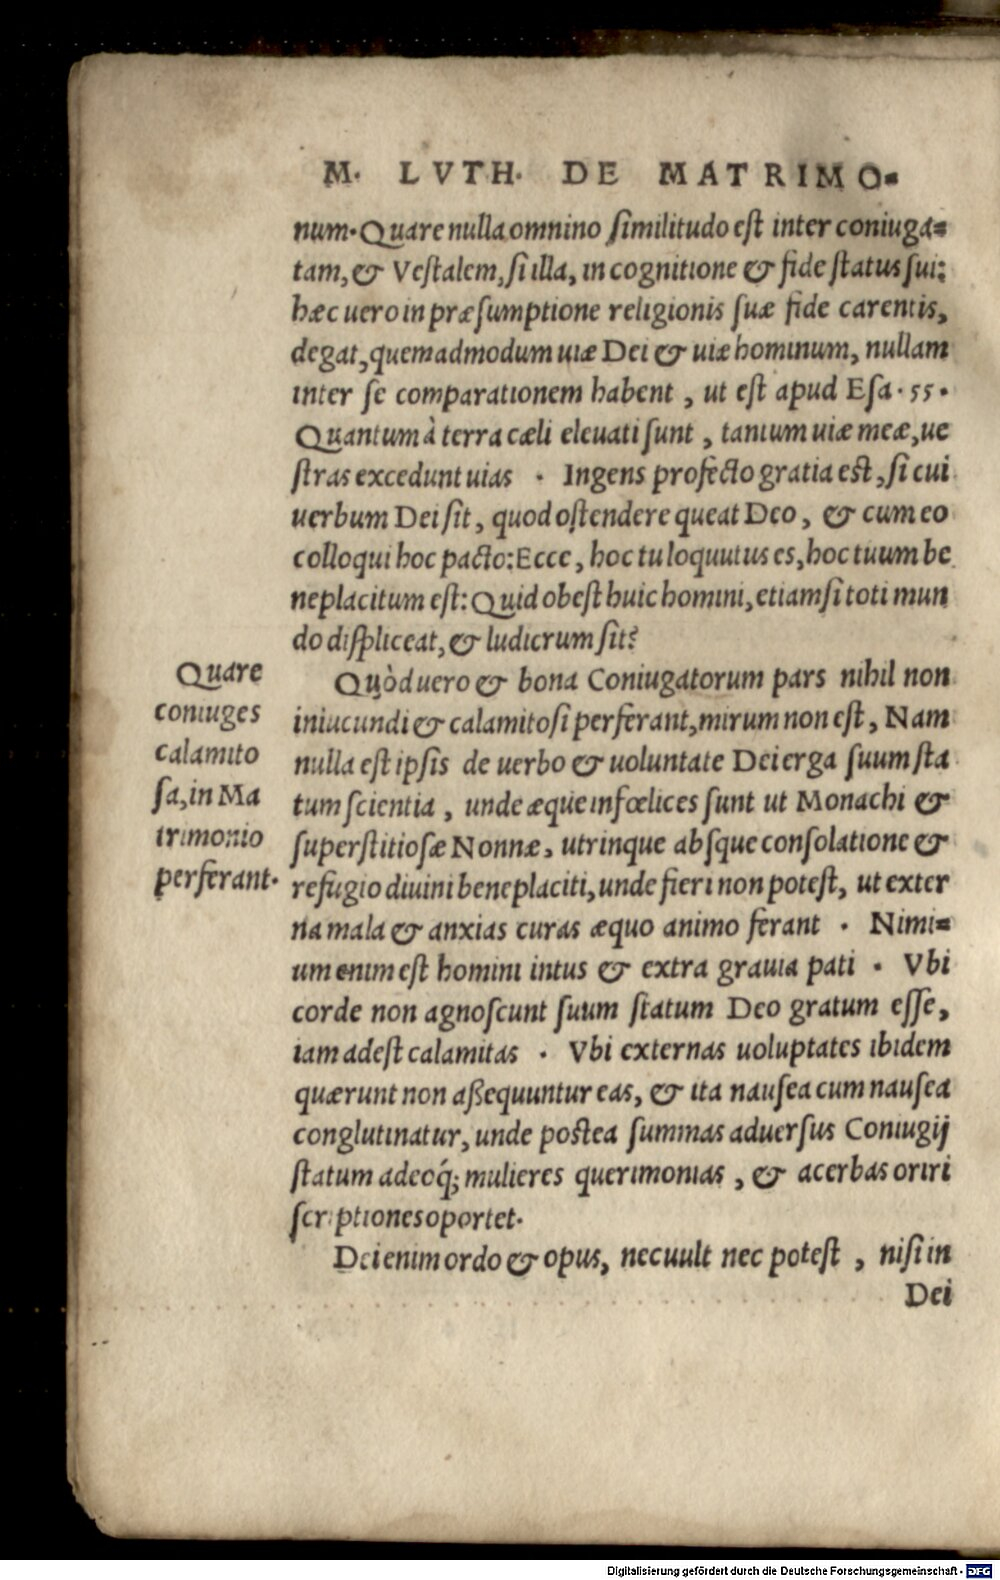 M. LVTH. DE MATRIMO=
num. Quare nulla omnino similitudo est inter coniuga=
tam, & Vestalem, si illa, in cognitione & fide status sui:
hæc uero in præsumptione religionis suæ fide carentis,
degat, quemadmodum uiæ Dei & uiæ hominum, nullam
inter se comparationem habent, ut est apud Esa. 55.
Quantum à terra cæli eleuati sunt, tantum uiæ meæ, ue
stras excedunt uias. Ingens profecto gratia est, si cui
uerbum Dei sit, quod ostendere queat Deo, & cum eo
colloqui hoc pacto: Ecce, hoc tu loquutus es, hoc tuum be
neplacitum est: Quid obest huic homini, etiamsi toti mun
do displiceat, & ludicrum sit?
Quare
coniuges
calamito
sa, in Ma
trimonio
perferant.
Quòd uero & bona Coniugatorum pars nihil non
iniucundi & calamitosi perferant, mirum non est, Nam
nulla est ipsis de uerbo & uoluntate Dei erga suum sta
tum scientia, unde æque infœlices sunt ut Monachi &
superstitiosæ Nonnæ, utrinque absque consolatione &
refugio diuini beneplaciti, unde fieri non potest, ut exter
na mala & anxias curas æquo animo ferant. Nimi=
um enim est homini intus & extra grauia pati. Vbi
corde non agnoscunt suum statum Deo gratum esse,
iam adest calamitas. Vbi externas uoluptates ibidem
quærunt non aßequuntur eas, & ita nausea cum nausea
conglutinatur, unde postea summas aduersus Coniugij
statum adeoq́; mulieres querimonias, & acerbas oriri
scriptiones oportet.
Dei enim ordo & opus, nec uult nec potest, nisi in
Dei
Digitalisierung gefördert durch die Deutsche Forschungsgemeinschaft - DFG